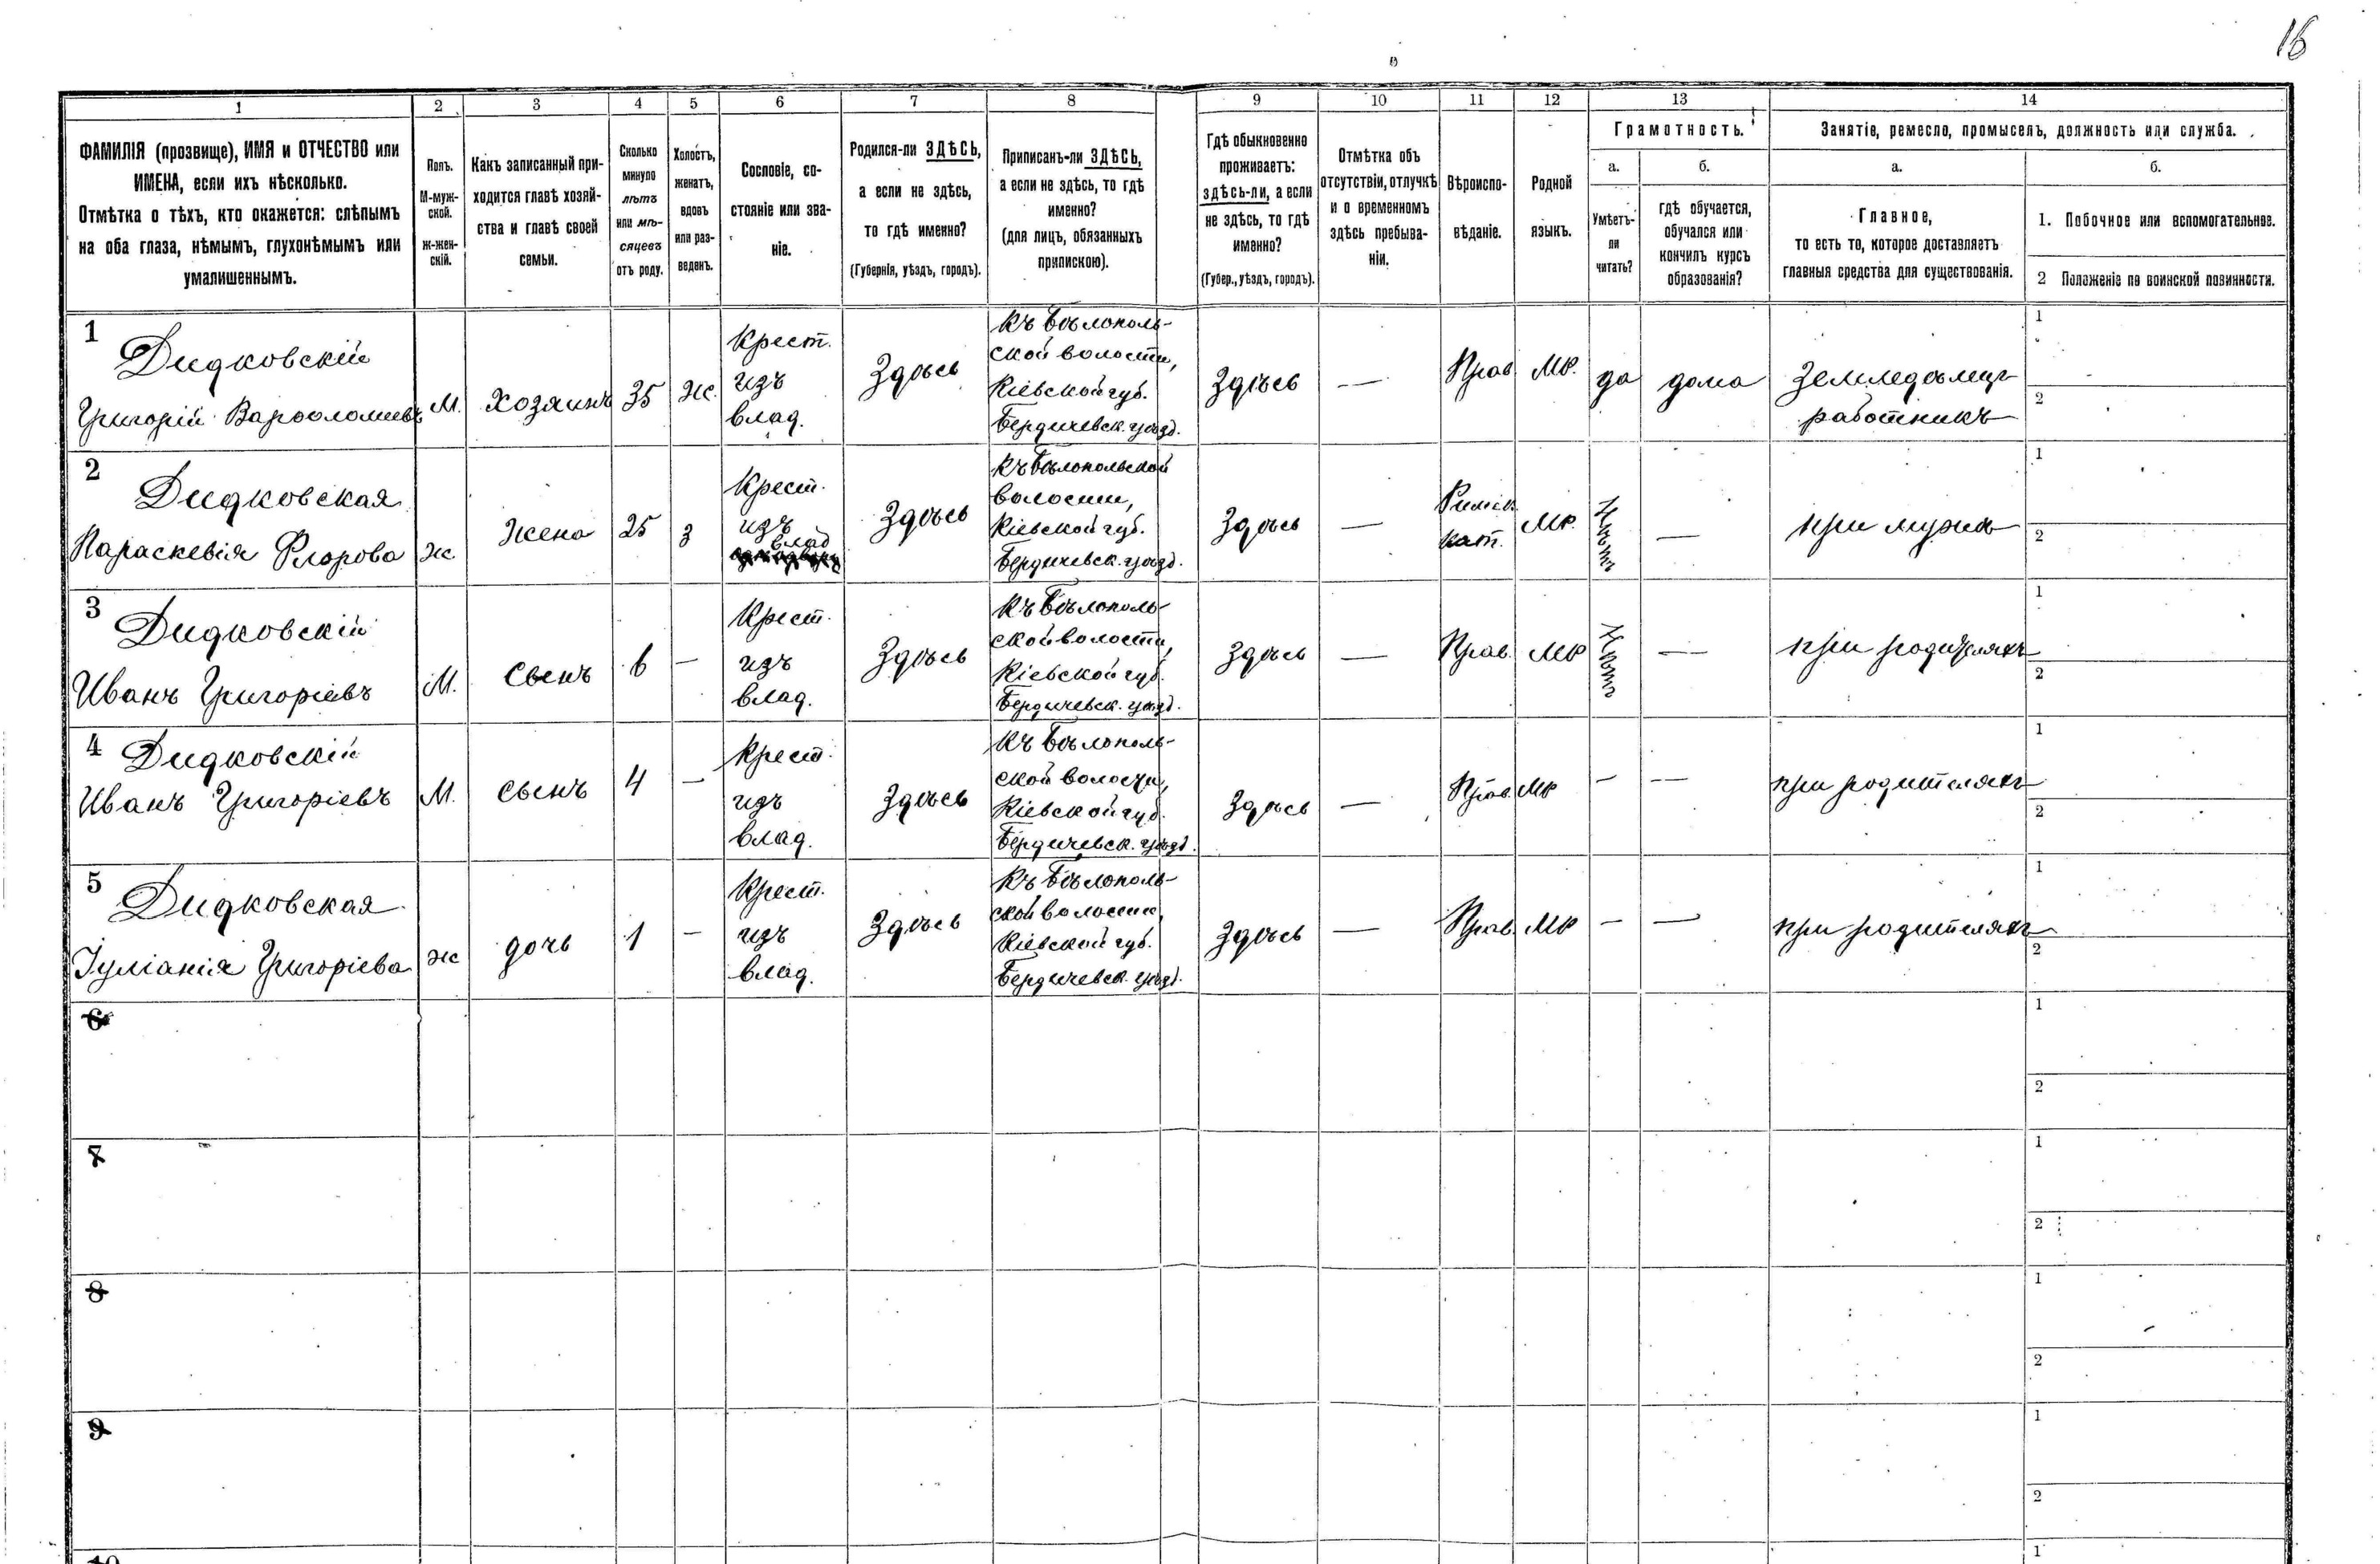 16
1 2 3 4 5 6 7 8 9 10 11 12 13 14
ФАМИЛІЯ (прозвище), ИМЯ и ОТЧЕСТВО или
ИМЕНА, если ихъ нѣсколько.
Отмѣтка о тѣхъ, кто окажется: слѣпымъ
на оба глаза, нѣмымъ, глухонѣмымъ или
умалишеннымъ.
Полъ.
М-муж-
ской.
Ж-жен-
скій.
Какъ записанный при-
ходится главѣ хозяй-
ства и главѣ своей
семьи.
Сколько
минуло
лѣтъ
или мѣ-
сяцевъ
отъ роду.
Холостъ,
женатъ,
вдовъ
или раз-
веденъ.
Сословіе, со-
стояніе или зва-
ніе.
Родился-ли ЗДѢСЬ,
а если не здѣсь,
то гдѣ именно?
(Губернія, уѣздъ, городъ).
Приписанъ-ли ЗДѢСЬ,
а если не здѣсь, то гдѣ
именно?
(для лицъ, обязанныхъ
припискою).
Гдѣ обыкновенно
проживаетъ:
здѣсь-ли, а если
не здѣсь, то гдѣ
именно?
(Губер., уѣздъ, городъ).
Отмѣтка объ
отсутствіи, отлучкѣ
и о временномъ
здѣсь пребыва-
ніи.
Вѣроиспо-
вѣданіе.
Родной
языкъ.
Грамотность.
а.
Умѣетъ-
ли
читать?
б.
гдѣ обучается,
обучался или
кончилъ курсъ
образованія?
Занятіе, ремесло, промыселъ, должность или служба.
а.
Главное,
то есть то, которое доставляетъ
главныя средства для существованія.
б.
1. Побочное или вспомогательное.
2 Положеніе по воинской повинности.
1
Дидковскій
Григорій Варѳоломиевъ
М.
Хозяинъ
35
Ж.
Крест.
изъ
влад.
Здѣсь
Къ Бѣлополь-
ской волости,
Кіевской губ.
Бердичевск. уѣзд.
Здѣсь
—
Прав.
Мр.
да
дома
Земледѣлецъ
работникъ
1
2
2
Дидковская
Параскевія Флорова
ж
Жена
25
З
Крест.
изъ
влад
Здѣсь
Къ Бѣлопольской
волости,
Кіевской губ.
Бердичевск. уѣзд.
Здѣсь
—
Римск.
кат.
Мр.
Нѣтъ
—
при мужѣ
1
2
3
Дидковскій
Иванъ Григоріевъ
М.
Сынъ
6
—
Крест.
изъ
влад.
Здѣсь
Къ Бѣлополь-
ской волости,
Кіевской губ.
Бердичевск. уѣзд.
Здѣсь
—
Прав.
Мр
Нѣтъ
—
при родителяхъ
1
2
4
Дидковскій
Иванъ Григоріевъ
М.
Сынъ
4
—
Крест.
изъ
влад.
Здѣсь
Къ Бѣлополь-
ской волости,
Кіевской губ.
Бердичевск. уѣзд.
Здѣсь
—
Прав.
Мр
—
—
при родителяхъ
1
2
5
Дидковская
Іуліанія Григоріева
ж
дочь
1
—
Крест.
изъ
влад.
Здѣсь
Къ Бѣлополь-
ской волости,
Кіевской губ.
Бердичевск. уѣзд.
Здѣсь
—
Прав.
Мр
—
—
при родителяхъ
1
2
6
1
2
7
1
2
8
1
2
9
1
2
10
1